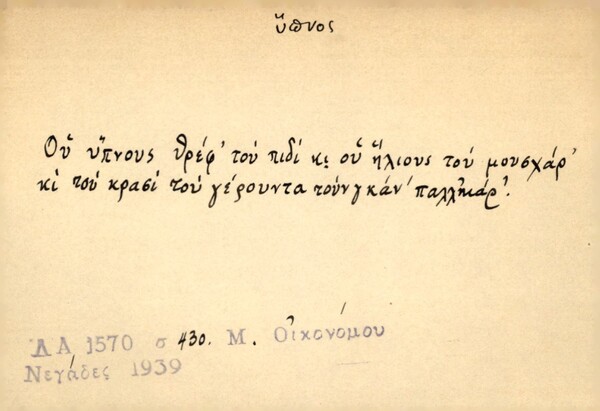 ὕπνος
Οὗ ὕπνους θρέφ' τοὺ πιδί κι οὗ ἥλιους τοὺ μουσχάρ'
κὶ τοὺ κρασὶ τοὺ γέρουντα τοὺνγκάν' παλληκάρ'.
ΛΑ 1570 σ 430. Μ. Οἰκονόμου
Νεγάδες 1939